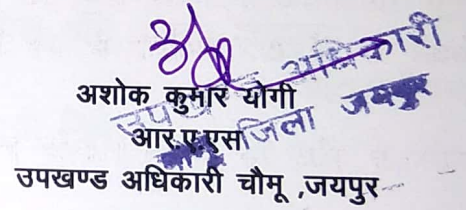 अशोक कुमार योगी
आर.ए.एस
उपखण्ड अधिकारी चौमू ,जयपुर
अधिकारी
जिला जयपुर